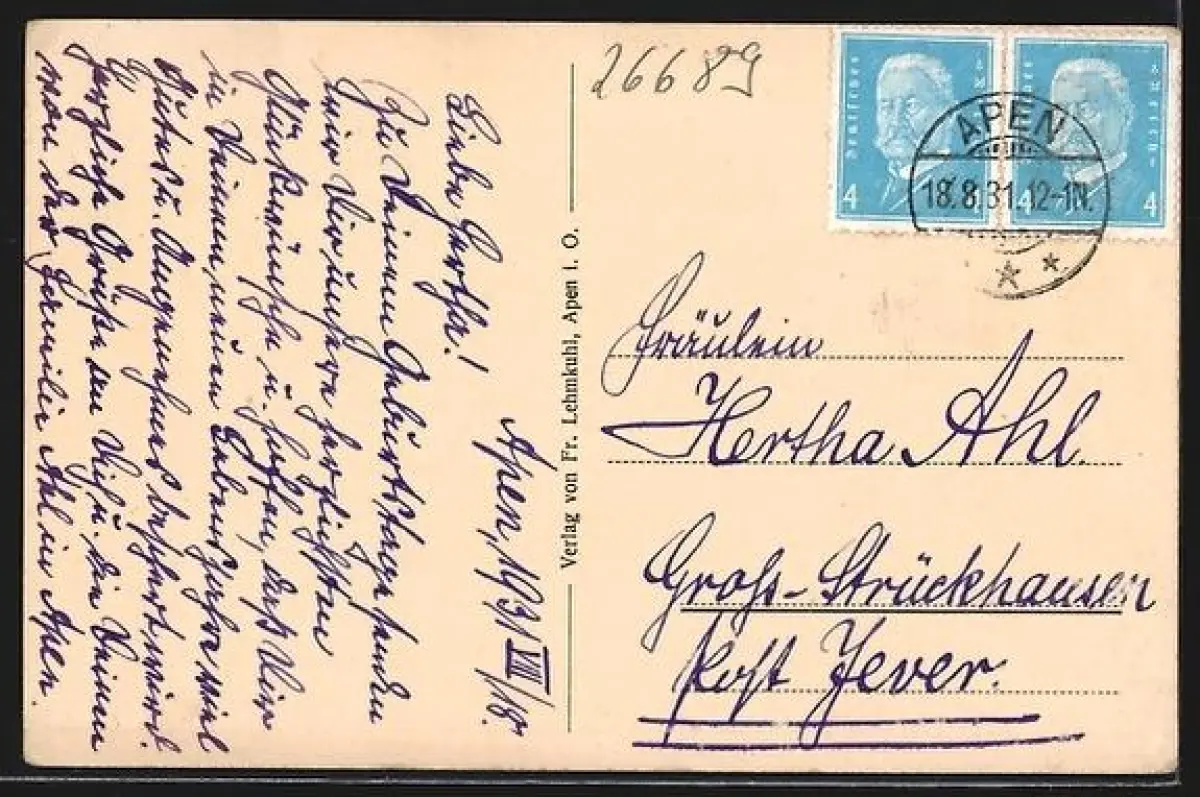 26689
Deutsches Reich
4
Deutsches Reich
4 4
APEN
18.8.31.12-1N.
Apen, 1931 VIII/18.
Liebe Hertha!
Zu Deinem Geburtstage senden
wir Dir unsere herzlichsten
Glückwünsche u. hoffen, daß Dir
in Deinem neuen Lebensjahre viel
Gutes u. Angenehmes beschert wird.
Herzliche Grüße an Dich u. die Deinen
von der Familie Ahl in Apen.
Verlag von Fr. Lehmkuhl, Apen i. O.
Fräulein
Hertha Ahl.
Groß-Strückhausen
Post Jever.